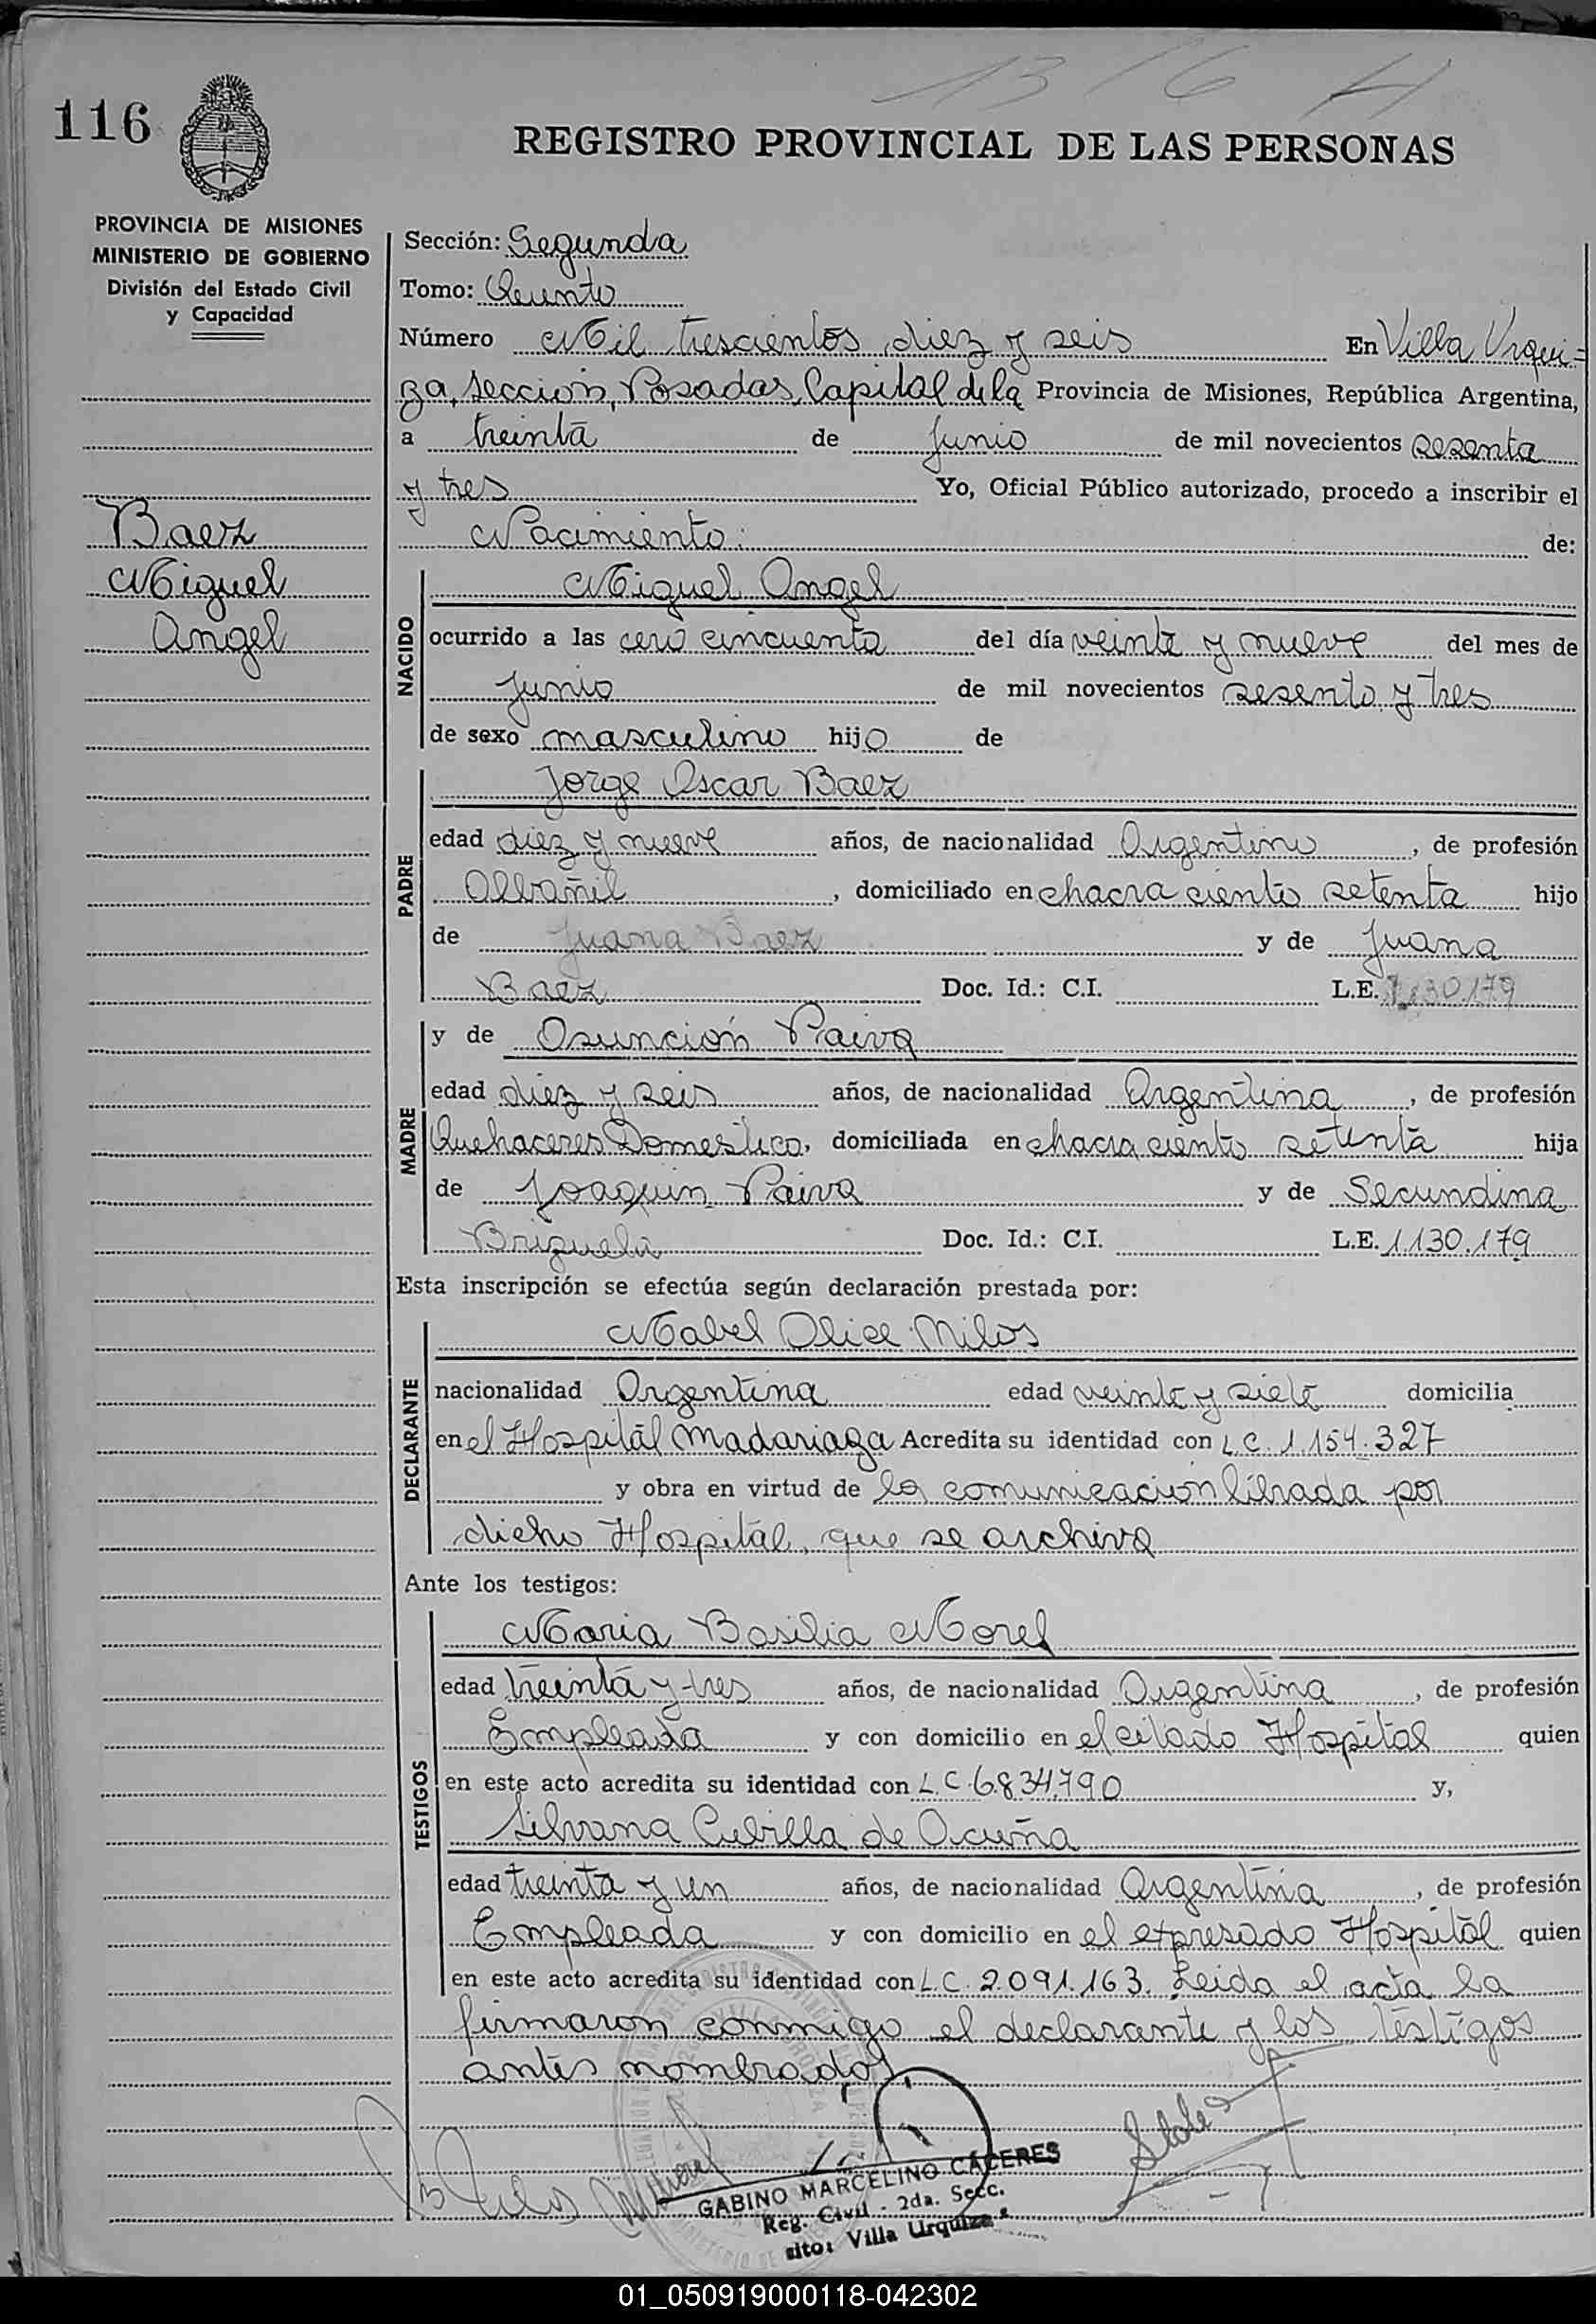 1316 H
116
REGISTRO PROVINCIAL DE LAS PERSONAS
PROVINCIA DE MISIONES
MINISTERIO DE GOBIERNO
División del Estado Civil
y Capacidad
Baez
Miguel
Angel
Sección: Segunda
Tomo: Quinto
Número Mil trescientos diez y seis En Villa Urqui=
za, sección, Posadas, Capital de la Provincia de Misiones, República Argentina,
a treinta de Junio de mil novecientos sesenta
y tres Yo, Oficial Público autorizado, procedo a inscribir el
Nacimiento: de:
NACIDO
Miguel Angel
ocurrido a las cero cincuenta del día veinte y nueve del mes de
Junio de mil novecientos sesenta y tres
de sexo masculino hijo de
PADRE
Jorge Oscar Baez
edad diez y nueve años, de nacionalidad Argentino, de profesión
Albañil, domiciliado en chacra ciento setenta hijo
de Juana Baez y de Juana
Baez Doc. Id.: C.I. L.E. 1.130.179
MADRE
y de Asunción Paiva
edad diez y seis años, de nacionalidad Argentina, de profesión
Quehaceres Domestico, domiciliada en chacra ciento setenta hija
de Joaquin Paiva y de Secundina
Brizuela Doc. Id.: C.I. L.E. 1.130.179
Esta inscripción se efectúa según declaración prestada por:
DECLARANTE
Mabel Alice Milos
nacionalidad Argentina edad veinte y siete domicilia
en el Hospital Madariaga Acredita su identidad con L.C. 1.154.327
y obra en virtud de la comunicación librada por
dicho Hospital, que se archiva
Ante los testigos:
TESTIGOS
Maria Basilia Morel
edad treinta y tres años, de nacionalidad Argentina, de profesión
Empleada y con domicilio en el citado Hospital quien
en este acto acredita su identidad con L.C. 6.834.790 y,
Silvana Cubilla de Acuña
edad treinta y un años, de nacionalidad Argentina, de profesión
Empleada y con domicilio en el expresado Hospital quien
en este acto acredita su identidad con L.C. 2.091.163. Leida el acta la
firmaron conmigo el declarante y los testigos
antes nombrados.
GABINO MARCELINO CÁCERES
Reg. Civil - 2da. Secc.
sito: Villa Urquiza
01_050919000118-042302